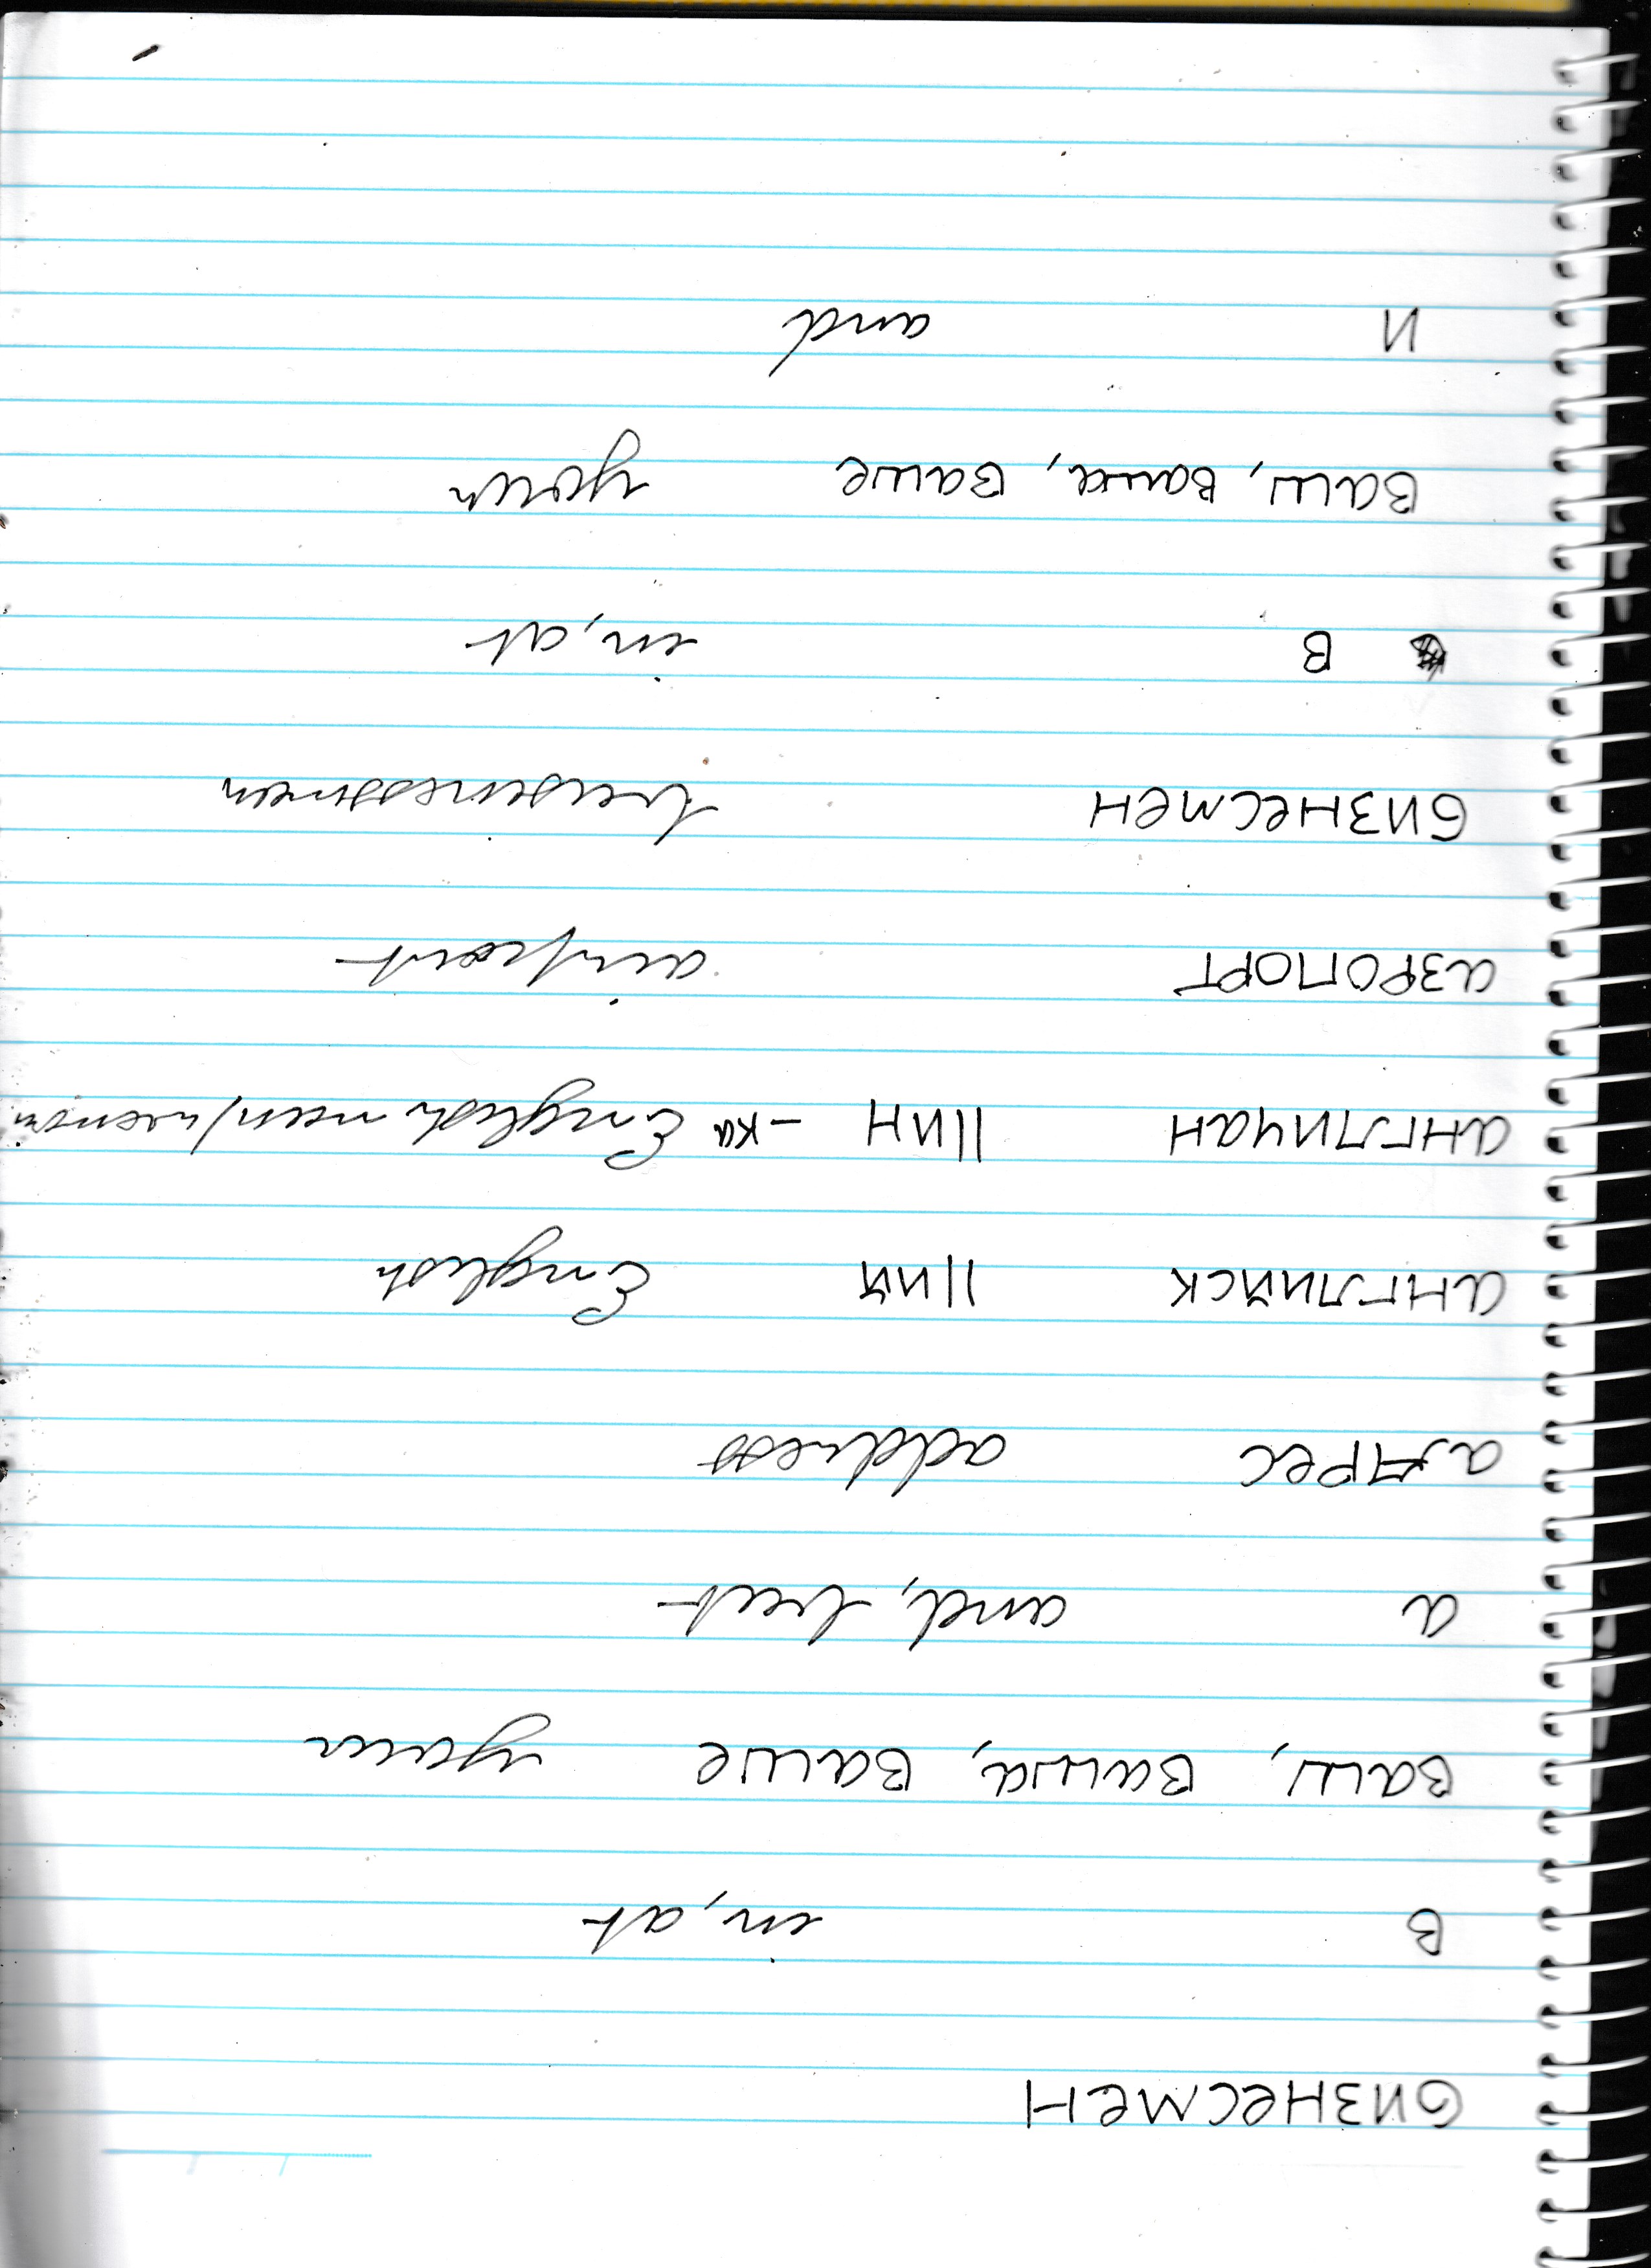 бизнесмен
в in, at
ваш, ваша, ваше your
а and, but
адрес address
английск ||ий English
англичан ||ин -ка English man/woman
аэропорт airport
бизнесмен businessman
в in, at
ваш, ваша, ваше your
и and